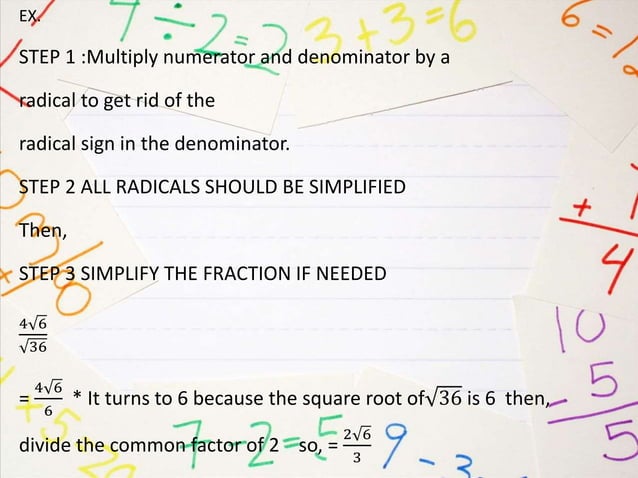 EX.
7 ÷ 2 = 2
3 + 3 = 6
6 = 12
STEP 1 :Multiply numerator and denominator by a
radical to get rid of the
radical sign in the denominator.
STEP 2 ALL RADICALS SHOULD BE SIMPLIFIED
Then,
STEP 3 SIMPLIFY THE FRACTION IF NEEDED
+ 1
4
4√6/√36
10
- 5
5
= 4√6/6 * It turns to 6 because the square root of√36 is 6 then,
divide the common factor of 2 so, = 2√6/3
7 - 2 = 5
9 - 3